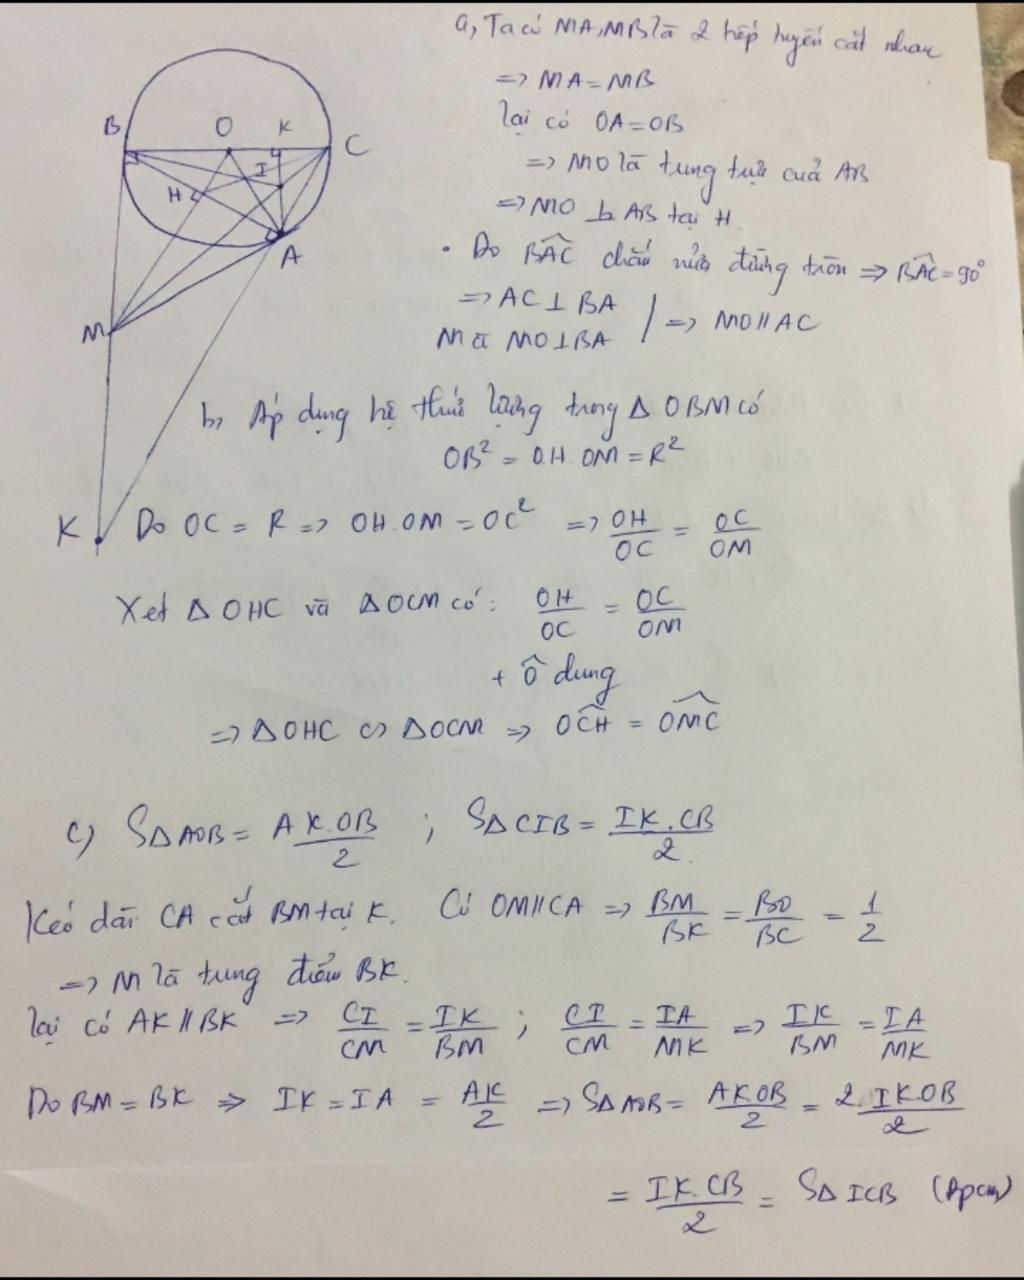 a, Ta có MA, MB là 2 tiếp tuyến cắt nhau
=> MA = MB
lại có OA = OB
=> MO là trung trực của AB
=> MO ⊥ AB tại H.
B O K C
I
H
A
M
K
• Do \widehat{BAC} chắn nửa đường tròn => \widehat{BAC} = 90°
=> AC ⊥ BA
Mà MO ⊥ BA | => MO // AC
b, Áp dụng hệ thức lượng trong Δ OBM có
OB² = OH.OM = R²
Do OC = R => OH.OM = OC² => OH/OC = OC/OM
Xét Δ OHC và Δ OCM có: OH/OC = OC/OM
+ Ô dung
=> Δ OHC ∽ Δ OCM => \widehat{OCH} = \widehat{OMC}
c) SΔAOB = AK.OB/2 ; SΔCIB = IK.CB/2.
Kéo dài CA cắt BM tại K. Có OM // CA => BM/BK = BO/BC = 1/2
=> M là trung điểm BK.
lại có AK // BK => CI/CM = IK/BM ; CI/CM = IA/MK => IK/BM = IA/MK
Do BM = BK => IK = IA = AK/2 => SΔAOB = AK.OB/2 = 2.IK.OB/2
= IK.CB/2 = SΔ ICB (Đpcm)